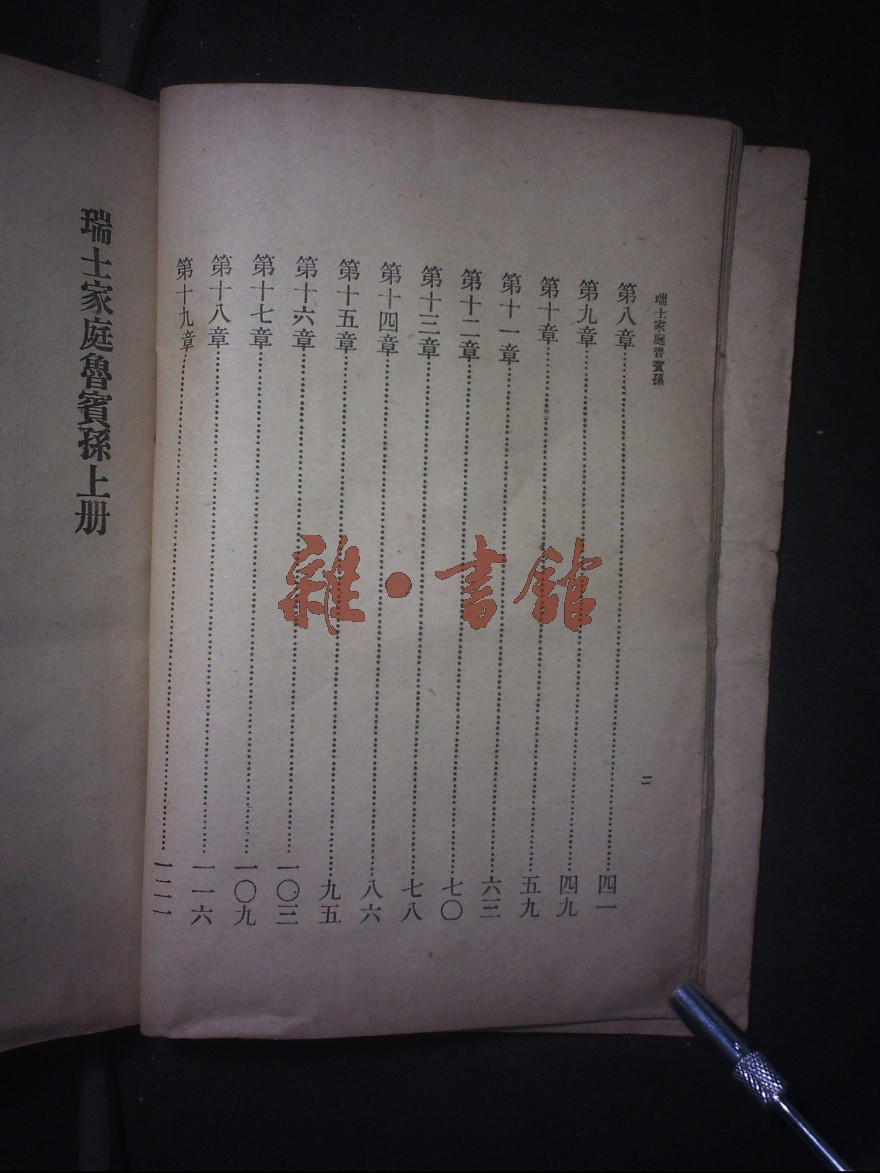 瑞士家庭魯賓孫
二
第八章……四一
第九章……四九
第十章……五九
第十一章……六三
第十二章……七〇
第十三章……七八
第十四章……八六
第十五章……九五
第十六章……一〇三
第十七章……一〇九
第十八章……一一六
第十九章……一二一
瑞士家庭魯賓孫上册
雜·書館